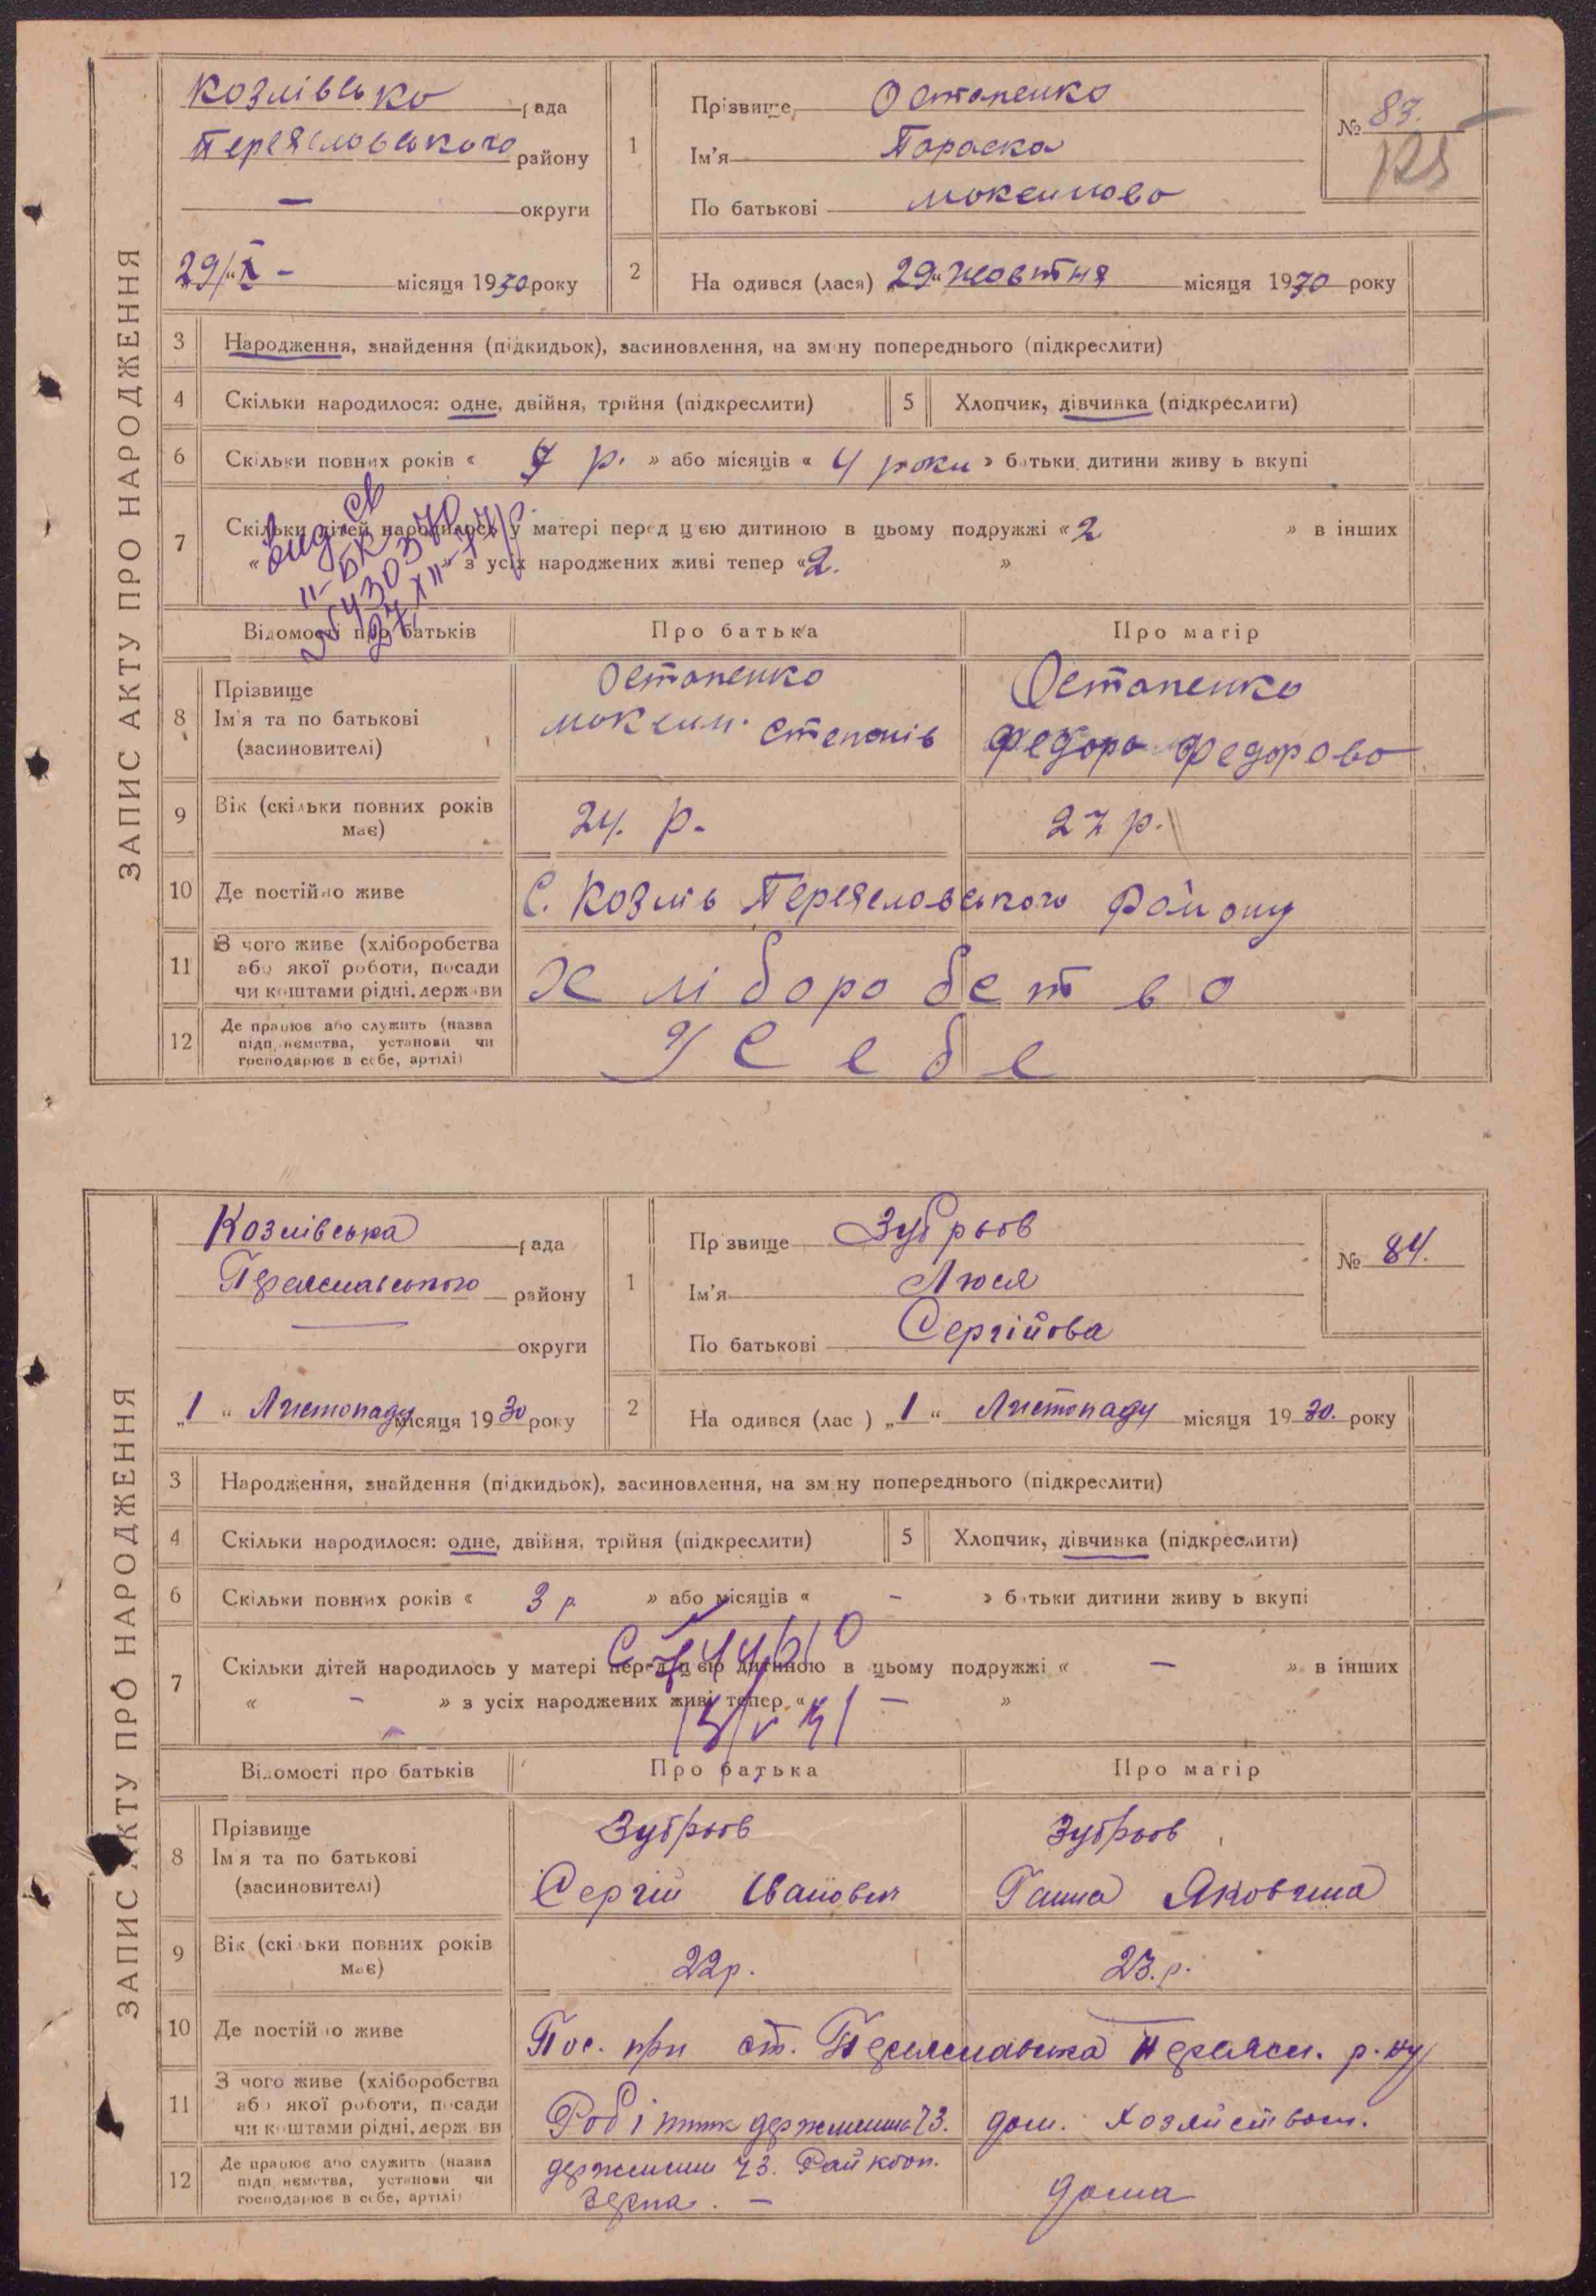 ЗАПИС АКТУ ПРО НАРОДЖЕННЯ
Козлівсько рада
Переясловського району
— округи
29/"X - місяця 1930 року
1
Прізвище Остопенко
Ім'я Пораска
По батькові Моксимово
№ 83.
2
На одився (лася) 29 "жовтня місяця 1930 року
3 Народження, знайдення (підкидьок), засиновлення, на зм ну попереднього (підкреслити)
4 Скільки народилося: одне, двійня, трійня (підкреслити)
5 Хлопчик, дівчинка (підкреслити)
6 Скільки повних років « р. » або місяців « 4 роки » батьки дитини живу ь вкупі
7 Скільки дітей народилось у матері перед цією дитиною в цьому подружжі « 2 » в інших
« » з усіх народжених живі тепер « 2. »
Вид. св
II-БК
27/XII-77 р.
Відомості про батьків Про батька Про матір
8 Прізвище
Ім'я та по батькові
(засиновителі)
Остопенко
Моксим. Степонів
Остопенко
Федоро Федорово
9 Вік (скільки повних років
має)
24. р.
27 р.
10 Де постійно живе
С. Козлів Переясловського Району
11 З чого живе (хліборобства
або якої роботи, посади
чи коштами рідні, держави
Хліборобство
12 Де працює або служить (назва
підп, иємства, установи чи
господарює в себе, артілі)
У Себе
ЗАПИС АКТУ ПРО НАРОДЖЕННЯ
Козлівська рада
Переяславського району
— округи
„1 “ Листопаду місяця 1930 року
1
Пр звище Зубрьов
Ім'я Люся
По батькові Сергійова
№ 84.
2
На одився (лас ) „1 “ Листопаду місяця 1930. року
3 Народження, знайдення (підкидьок), засиновлення, на зм ну попереднього (підкреслити)
4 Скільки народилося: одне, двійня, трійня (підкреслити)
5 Хлопчик, дівчинка (підкреслити)
6 Скільки повних років « 3 р » або місяців « - » батьки дитини живу ь вкупі
7 Скільки дітей народилось у матері перед цією дитиною в цьому подружжі « — » в інших
« - » з усіх народжених живі тепер « — »
Відомості про батьків Про батька Про матір
8 Прізвище
Ім я та по батькові
(засиновителі)
Зубрьов
Сергій Іванович
Зубрьов
Ганна Яковлина
9 Вік (скільки повних років
має)
22р.
23.р.
10 Де постійно живе
Пос. при ст. Переяславська Переясл. р-ну
11 З чого живе (хліборобства
або якої роботи, посади
чи коштами рідні, держ ви
Робітник 73.
дом. хозяйством.
12 Де працює або служить (назва
підп, иємства, установи чи
господарює в себе, артілі)
73. Райкооп.
Зерна. —
дома